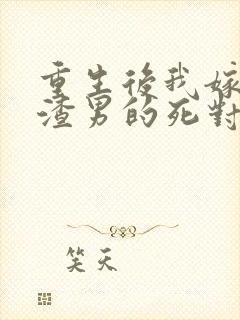 重生後我嫁
渣男的死對
笑天